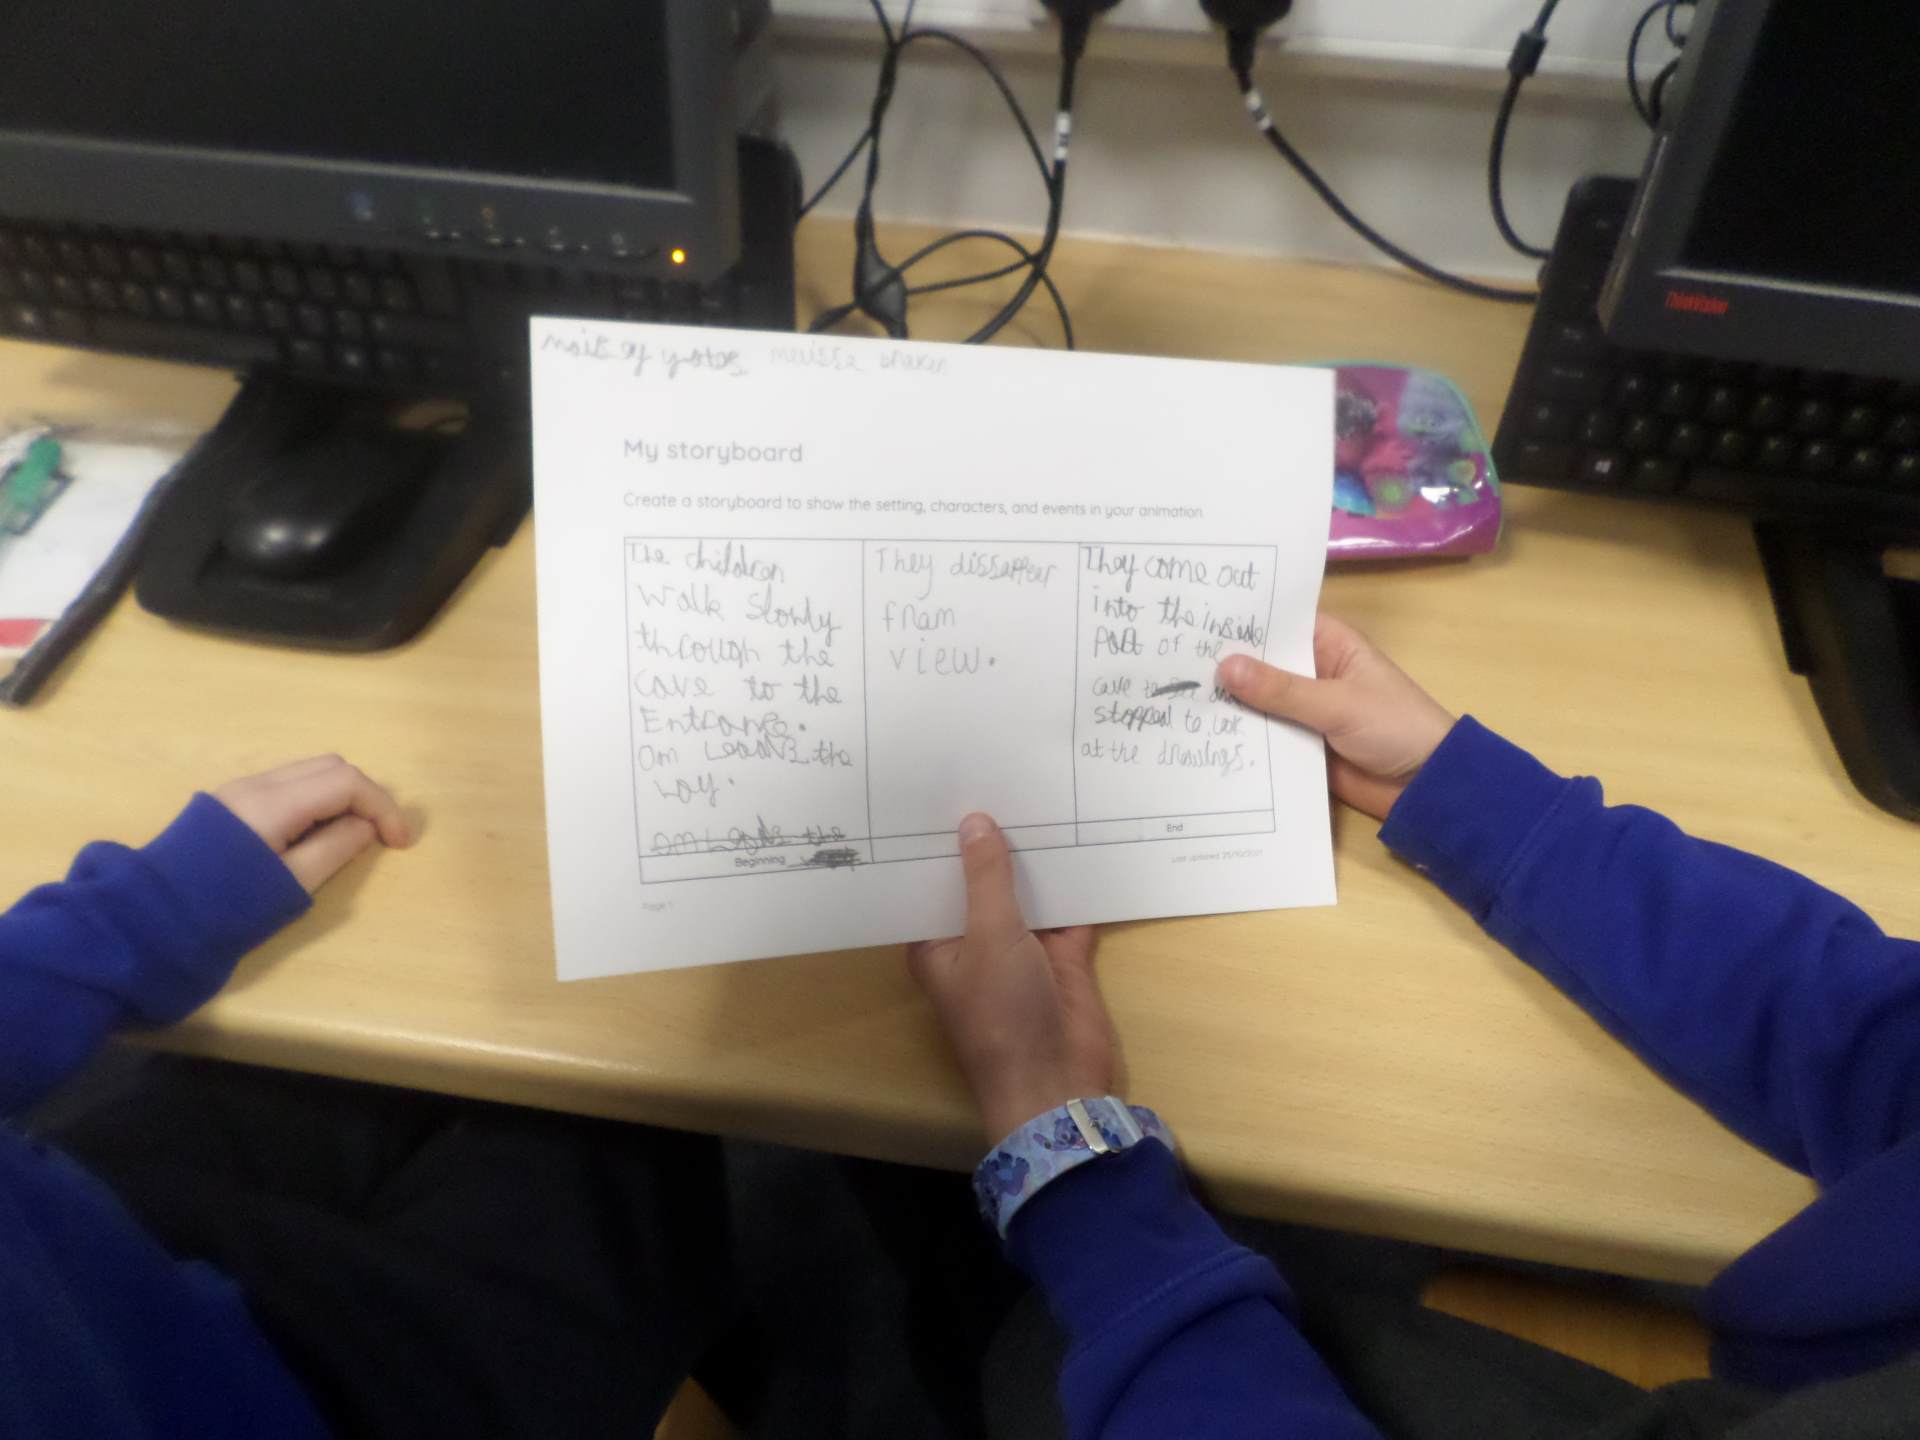 My storyboard
Create a storyboard to show the setting, characters, and events in your animation.
The children
walk slowly
through the
cave to the
Entrance.
Om Leads the
way.
Om Leads the
Beginning
They dissappear
from
view.
They come out
into the inside
Part of the
cave and
stopped to look
at the drawings.
End
Last updated 25/10/2021
Page 1
ThinkVision